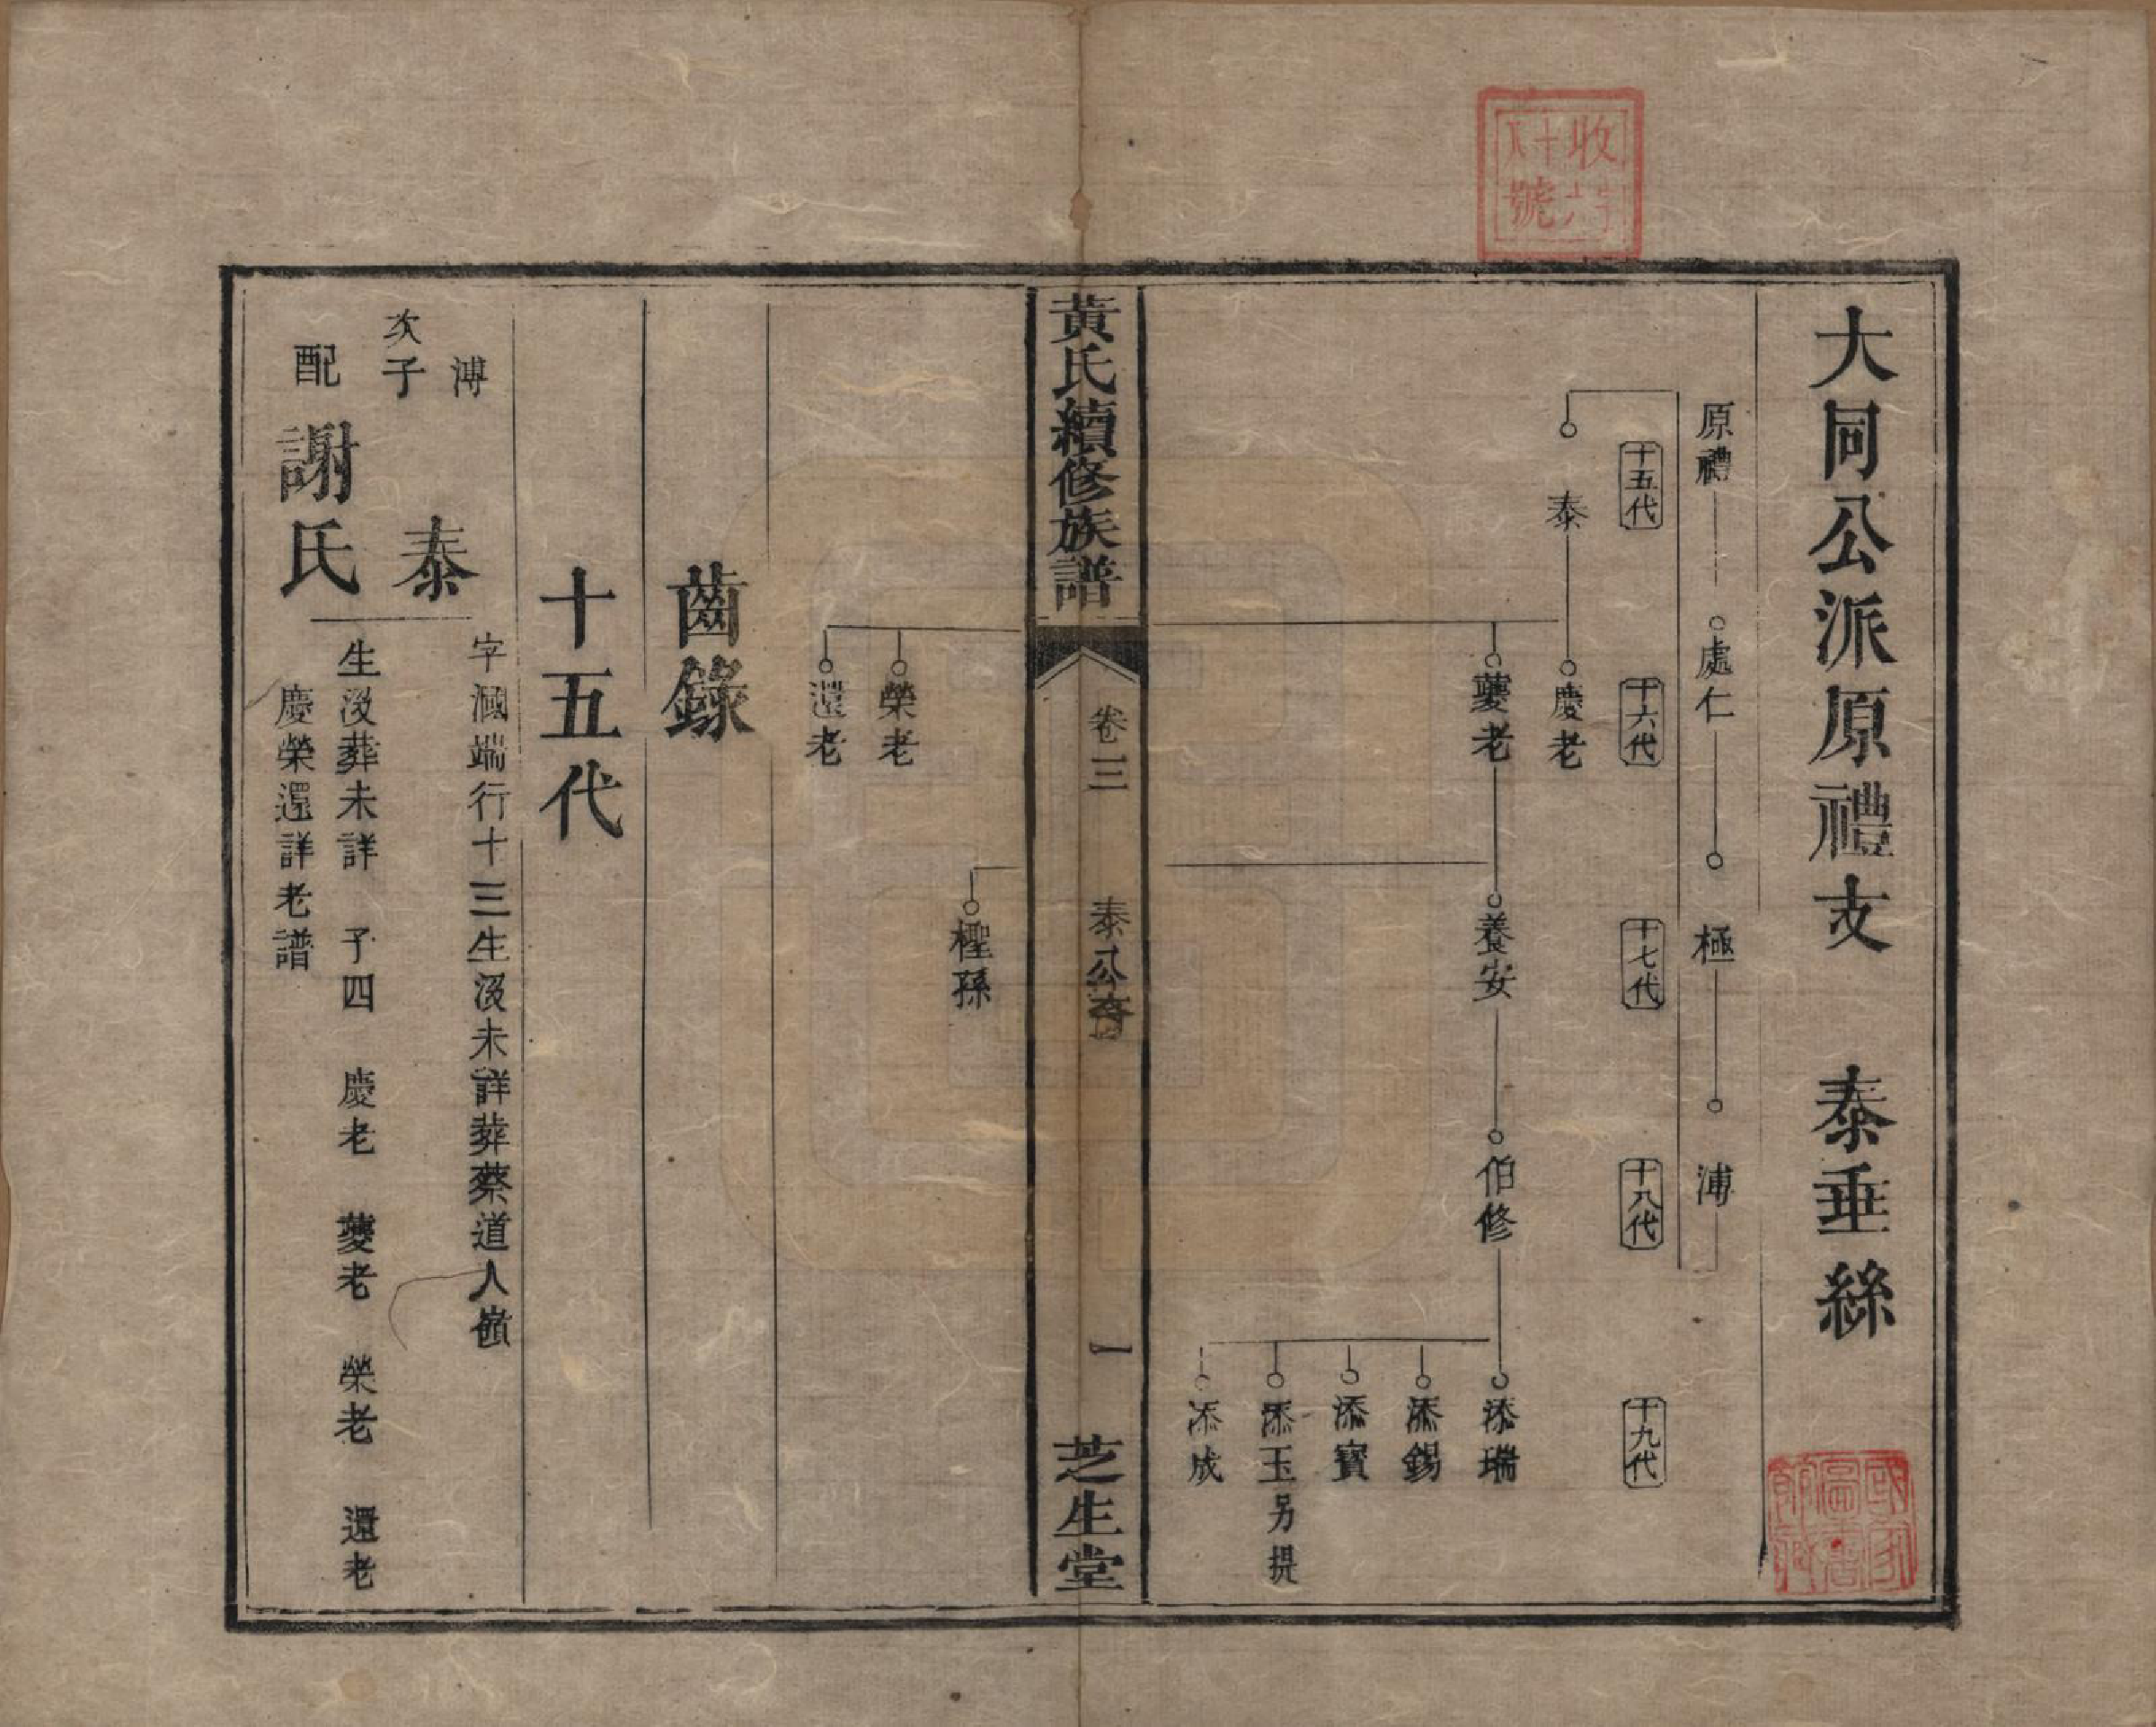 大同公派原禮支　泰垂絲
原禮　處仁　極　溥
十五代　十六代　十七代　十八代　十九代
泰　慶老
夔老　養安　伯修　添瑞
添錫
添寶
添玉另提
添成
黃氏續修族譜　卷三　泰公房　一　芝生堂
檉孫
榮老
還老
齒錄
十五代
溥
次子
泰　字滙端行十三生沒未詳葬蔡道人嶺
配謝氏　生沒葬未詳　子四　慶老　夔老　榮老　還老
慶榮還詳老譜